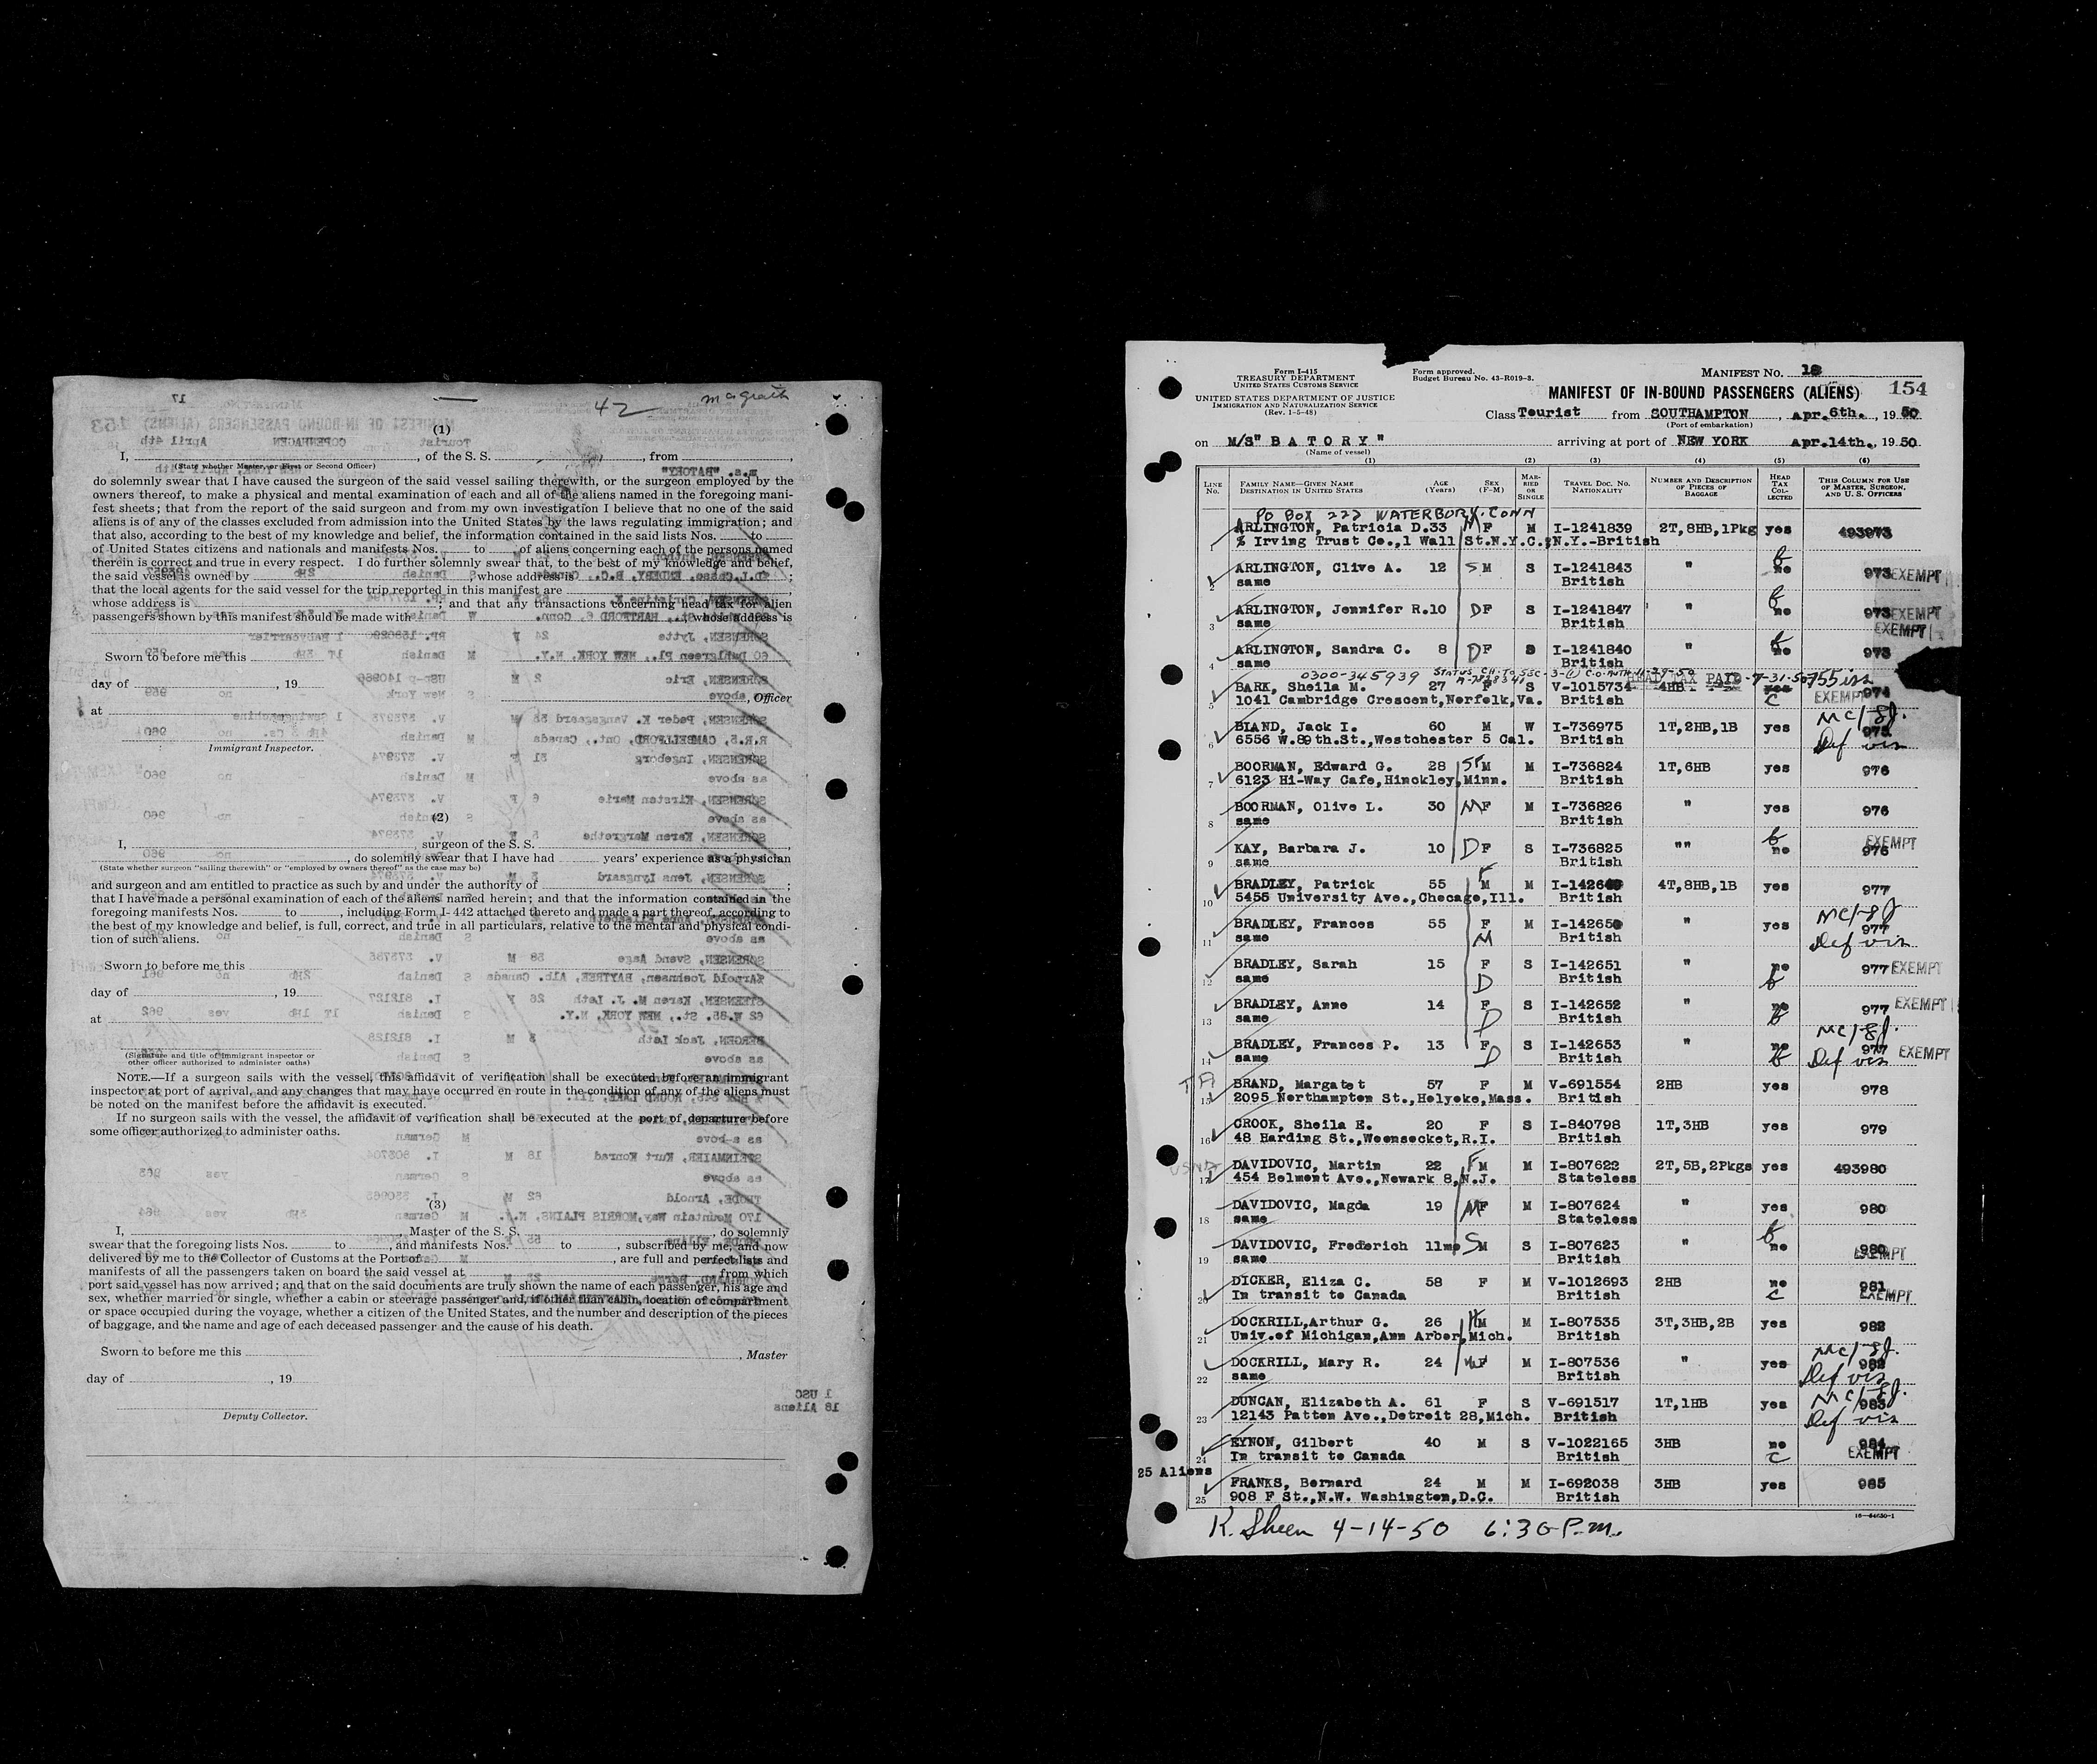 42 McGrath
(1)
I, , of the S. S. , from ,
(State whether Master, or First or Second Officer)
do solemnly swear that I have caused the surgeon of the said vessel sailing therewith, or the surgeon employed by the
owners thereof, to make a physical and mental examination of each and all of the aliens named in the foregoing mani-
fest sheets; that from the report of the said surgeon and from my own investigation I believe that no one of the said
aliens is of any of the classes excluded from admission into the United States by the laws regulating immigration; and
that also, according to the best of my knowledge and belief, the information contained in the said lists Nos. to
of United States citizens and nationals and manifests Nos. to of aliens concerning each of the persons named
therein is correct and true in every respect. I do further solemnly swear that, to the best of my knowledge and belief,
the said vessel is owned by whose address is ;
that the local agents for the said vessel for the trip reported in this manifest are ,
whose address is ; and that any transactions concerning head tax for alien
passengers shown by this manifest should be made with , whose address is
Sworn to before me this
day of , 19
, Officer
at
Immigrant Inspector.
(2)
I, , surgeon of the S. S.
, do solemnly swear that I have had years' experience as a physician
(State whether surgeon "sailing therewith" or "employed by owners thereof" as the case may be)
and surgeon and am entitled to practice as such by and under the authority of ;
that I have made a personal examination of each of the aliens named herein; and that the information contained in the
foregoing manifests Nos. to , including Form I-442 attached thereto and made a part thereof, according to
the best of my knowledge and belief, is full, correct, and true in all particulars, relative to the mental and physical condi-
tion of such aliens.
Sworn to before me this
day of , 19
at
(Signature and title of immigrant inspector or
other officer authorized to administer oaths)
NOTE.—If a surgeon sails with the vessel, this affidavit of verification shall be executed before an immigrant
inspector at port of arrival, and any changes that may have occurred en route in the condition of any of the aliens must
be noted on the manifest before the affidavit is executed.
If no surgeon sails with the vessel, the affidavit of verification shall be executed at the port of departure before
some officer authorized to administer oaths.
(3)
I, , Master of the S. S. , do solemnly
swear that the foregoing lists Nos. to , and manifests Nos. to , subscribed by me, and now
delivered by me to the Collector of Customs at the Port of , are full and perfect lists and
manifests of all the passengers taken on board the said vessel at from which
port said vessel has now arrived; and that on the said documents are truly shown the name of each passenger, his age and
sex, whether married or single, whether a cabin or steerage passenger and, if other than cabin, location of compartment
or space occupied during the voyage, whether a citizen of the United States, and the number and description of the pieces
of baggage, and the name and age of each deceased passenger and the cause of his death.
Sworn to before me this
, Master
day of , 19
Deputy Collector.
Form I-415
TREASURY DEPARTMENT
UNITED STATES CUSTOMS SERVICE
UNITED STATES DEPARTMENT OF JUSTICE
IMMIGRATION AND NATURALIZATION SERVICE
(Rev. 1-5-48)
Form approved.
Budget Bureau No. 43-R019-3.
MANIFEST NO. 18
MANIFEST OF IN-BOUND PASSENGERS (ALIENS) 154
Class Tourist from SOUTHAMPTON , Apr.6th. , 19 50
(Port of embarkation)
on M/S" B A T O R Y " arriving at port of NEW YORK Apr.14th. , 19 50
(Name of vessel)
(1) (2) (3) (4) (5) (6)
LINE No. FAMILY NAME—GIVEN NAME DESTINATION IN UNITED STATES AGE (Years) SEX (F-M) MARRIED OR SINGLE TRAVEL DOC. NO. NATIONALITY NUMBER AND DESCRIPTION OF PIECES OF BAGGAGE HEAD TAX COLLECTED THIS COLUMN FOR USE OF MASTER, SURGEON, AND U. S. OFFICERS
PO BOX 222 WATERBURY. CONN
1 ARLINGTON, Patricia D. 33 M F M I-1241839 2T,8HB,1Pkg yes 493973
% Irving Trust Co.,1 Wall St.N.Y.C.;N.Y.-British
2 ARLINGTON, Clive A. 12 S M S I-1241843 " no 973 EXEMPT
same British
3 ARLINGTON, Jennifer R. 10 D F S I-1241847 " no 973 EXEMPT
same British EXEMPT
4 ARLINGTON, Sandra C. 8 D F S I-1241840 " no 973
same British
0300-345939 HEAD TAX PAID
5 BARK, Sheila M. 27 F S V-1015734 4HB yes 974
1041 Cambridge Crescent,Norfolk,Va. British C EXEMPT
6 BIAND, Jack I. 60 M W I-736975 1T,2HB,1B yes 975
6556 W.89th.St.,Westchester 5 Cal. British Def vis
7 BOORMAN, Edward G. 28 M M I-736824 1T,6HB yes 976
6123 Hi-Way Cafe,Hinckley,Minn. British
8 BOORMAN, Olive L. 30 M F M I-736826 " yes 976
same British
9 KAY, Barbara J. 10 D F S I-736825 "" no 976 EXEMPT
same British
10 BRADLEY, Patrick 55 F M M yes 977 4T,8HB,1B
5455 University Ave.,Checage,Ill. British
11 BRADLEY, Frances 55 F M " yes 977
same M British Def vis
12 BRADLEY, Sarah 15 F S I-142651 " no 977 EXEMPT
same D British
13 BRADLEY, Anne 14 F S I-142652 " no 977 EXEMPT
same D British
14 BRADLEY, Frances P. 13 F S I-142653 " no 977 EXEMPT
same D British Def vis
15 BRAND, Margatet 57 F M V-691554 2HB yes 978
2095 Northampton St.,Holyoke,Mass. British
16 CROOK, Sheila E. 20 F S I-840798 1T,3HB yes 979
48 Harding St.,Woonsocket,R.I. British
17 DAVIDOVIC, Martin 22 F M M I-807622 2T,5B,2Pkgs yes 493980
454 Belmont Ave.,Newark 8,N.J. Stateless
18 DAVIDOVIC, Magda 19 M F M I-807624 " yes 980
same Stateless
19 DAVIDOVIC, Frederich 11mo S M S I-807623 " no 980 EXEMPT
same British
20 DICKER, Eliza C. 58 F M V-1012693 2HB no 981
In transit to Canada British C EXEMPT
21 DOCKRILL,Arthur G. 26 H M M I-807535 3T,3HB,2B yes 982
Univ.of Michigan,Ann Arbor,Mich. British
22 DOCKRILL, Mary R. 24 W F M I-807536 " yes 982
same British Def vis
23 DUNCAN, Elizabeth A. 61 F S V-691517 1T,1HB yes 983
12143 Patton Ave.,Detroit 28,Mich. British Def vis
24 EYNON, Gilbert 40 M S V-1022165 3HB no 984
In transit to Canada British C EXEMPT
25 Aliens
25 FRANKS, Bernard 24 M M I-692038 3HB yes 985
908 F St.,N.W. Washington,D.C. British
K. Sheen 4-14-50 6:30 P.m.